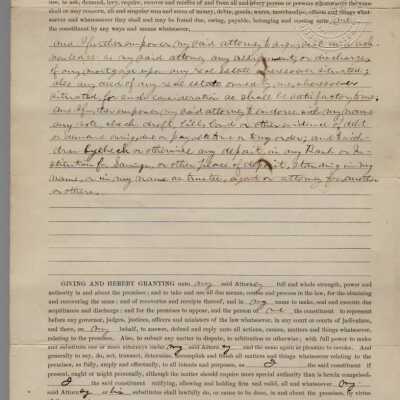 use, to ask, demand, levy, require, recover and receive of and from all and every person or persons whomsoever the same
shall or may concern, all and singular sum and sums of money, debts, goods, wares, merchandise, effects and things what-
soever and wheresoever they shall and may be found due, owing, payable, belonging and coming unto
the constituent by any ways and means whatsoever,
And I further empower my said attorney to sign, seal and acknow
ledge as my said attorney any assignments or discharges
of any mortgage upon any real estate wheresoever situated;
also any deed of any real estate owned by me, wheresoever
situated, for such consideration as shall be satisfactory to me;
And I further empower my said attorney to endorse with my name
any note, check, draft, bill or other evidence of debt
or demand running or payable to me or my order; and to with
draw by check or otherwise any deposit in any Bank or In-
stitution for Savings or other place of deposit, standing in my
name, or in my name as trustee, agent or attorney for another
or others.
GIVING AND HEREBY GRANTING unto my said Attorney full and whole strength, power and
authority in and about the premises; and to take and use all due means, course and process in the law, for the obtaining
and recovering the same; and of recoveries and receipts thereof, and in my name to make, seal and execute due
acquittance and discharge; and for the premises to appear, and the person of me the constituent to represent
before any governor, judges, justices, officers and ministers of the law whatsoever, in any court or courts of judicature,
and there, on my behalf, to answer, defend and reply unto all actions, causes, matters and things whatsoever,
relating to the premises. Also, to submit any matter in dispute, to arbitration or otherwise; with full power to make
and substitute one or more attorneys under my said Attorney and the same again at pleasure to revoke. And
generally to say, do, act, transact, determine, accomplish and finish all matters and things whatsoever relating to the
premises, as fully, amply and effectually, to all intents and purposes, as I the said constituent if
present, ought or might personally, although the matter should require more special authority than is herein comprised.
I the said constituent ratifying, allowing and holding firm and valid, all and whatsoever my
said Attorney or his substitutes shall lawfully do, or cause to be done, in and about the premises, by virtue